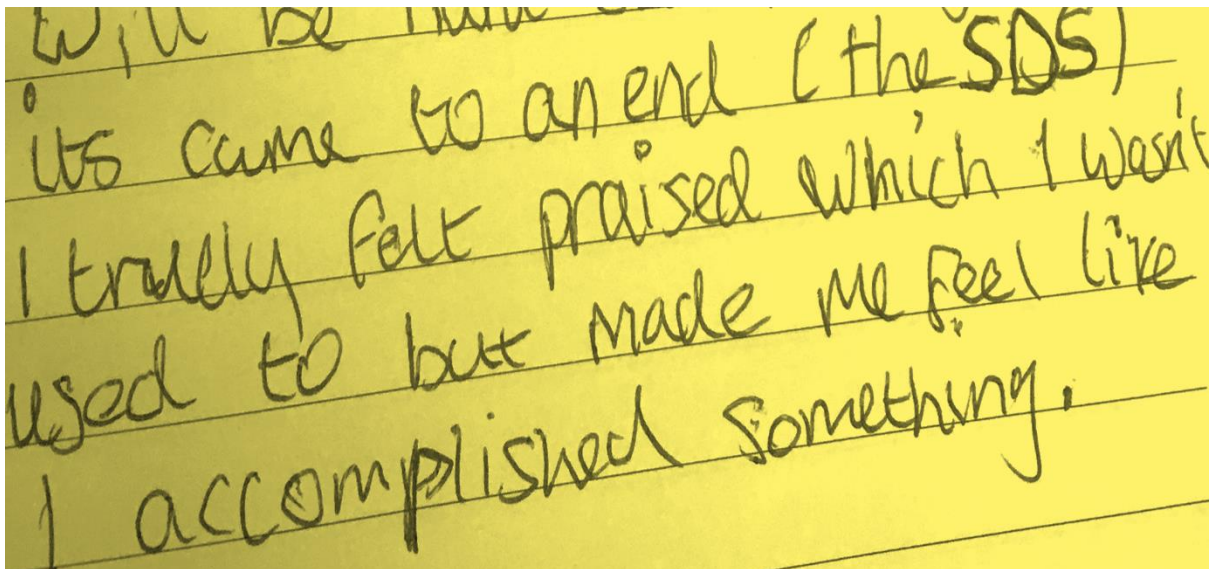 will be
its came to an end (the SDS)
I truely felt praised which I wasn't
used to but made me feel like
I accomplished something.